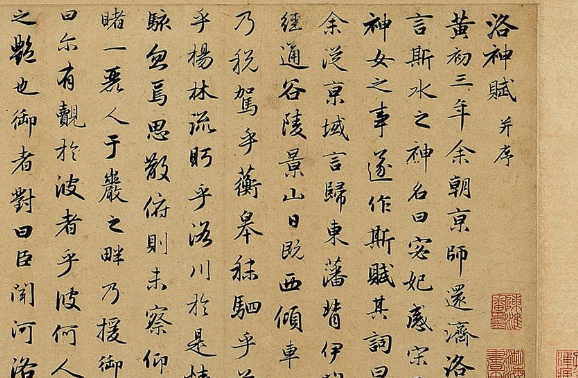 洛神賦 并序
黄初三年余朝京師還濟洛
言斯水之神名曰宓妃感宋
神女之事遂作斯賦其詞曰
余從京域言歸東藩背伊
經通谷陵景山日既西傾車
乃税駕乎蘅皋秣駟乎
乎楊林流眄乎洛川於是
駭忽焉思散俯則未察仰
睹一麗人于巖之畔乃援御
曰尓有覿於彼者乎彼何人
之豔也御者對曰臣聞河洛